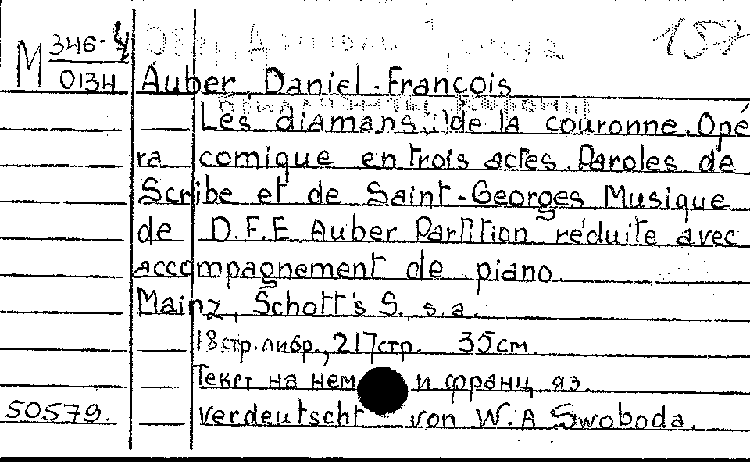 M 346-4
0134
Auber, Daniel-François
Les diamans de la couronne. Opé
ra comique en trois actes. Paroles de
Scribe et de Saint-Georges Musique
de D.F.E Auber Partition réduite avec
accompagnement de piano.
Mainz, Schott's S. s.a.
18 стр. либр., 217 стр. 35 см.
Текст на нем и франц яз.
50579. verdeutscht von W.A Swoboda.